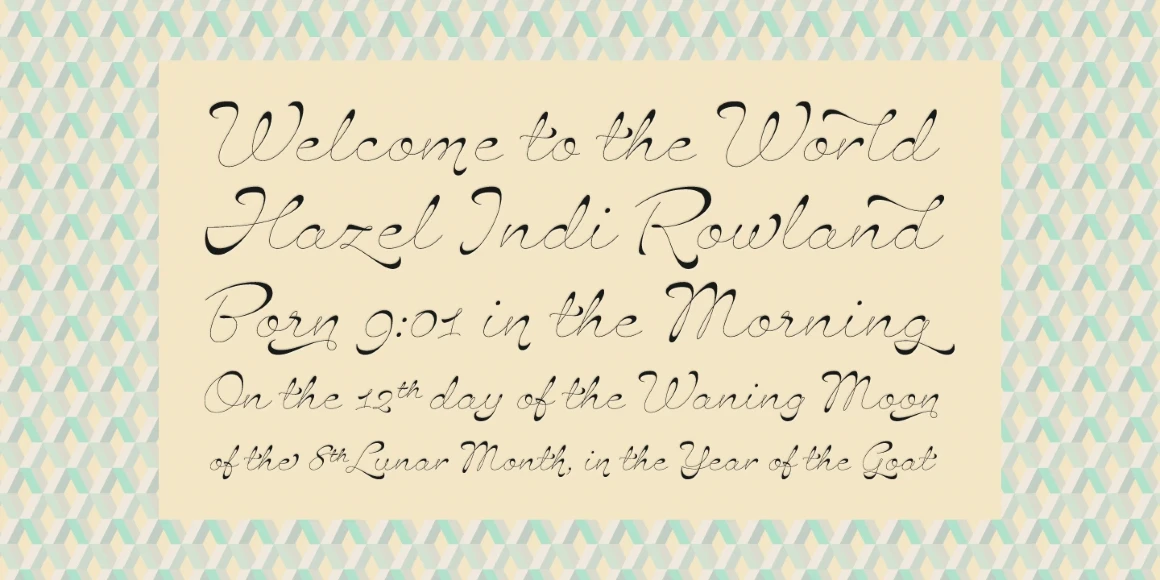 Welcome to the World
Hazel Indi Rowland
Born 9:01 in the Morning
On the 12th day of the Waning Moon
of the 8th Lunar Month, in the Year of the Goat